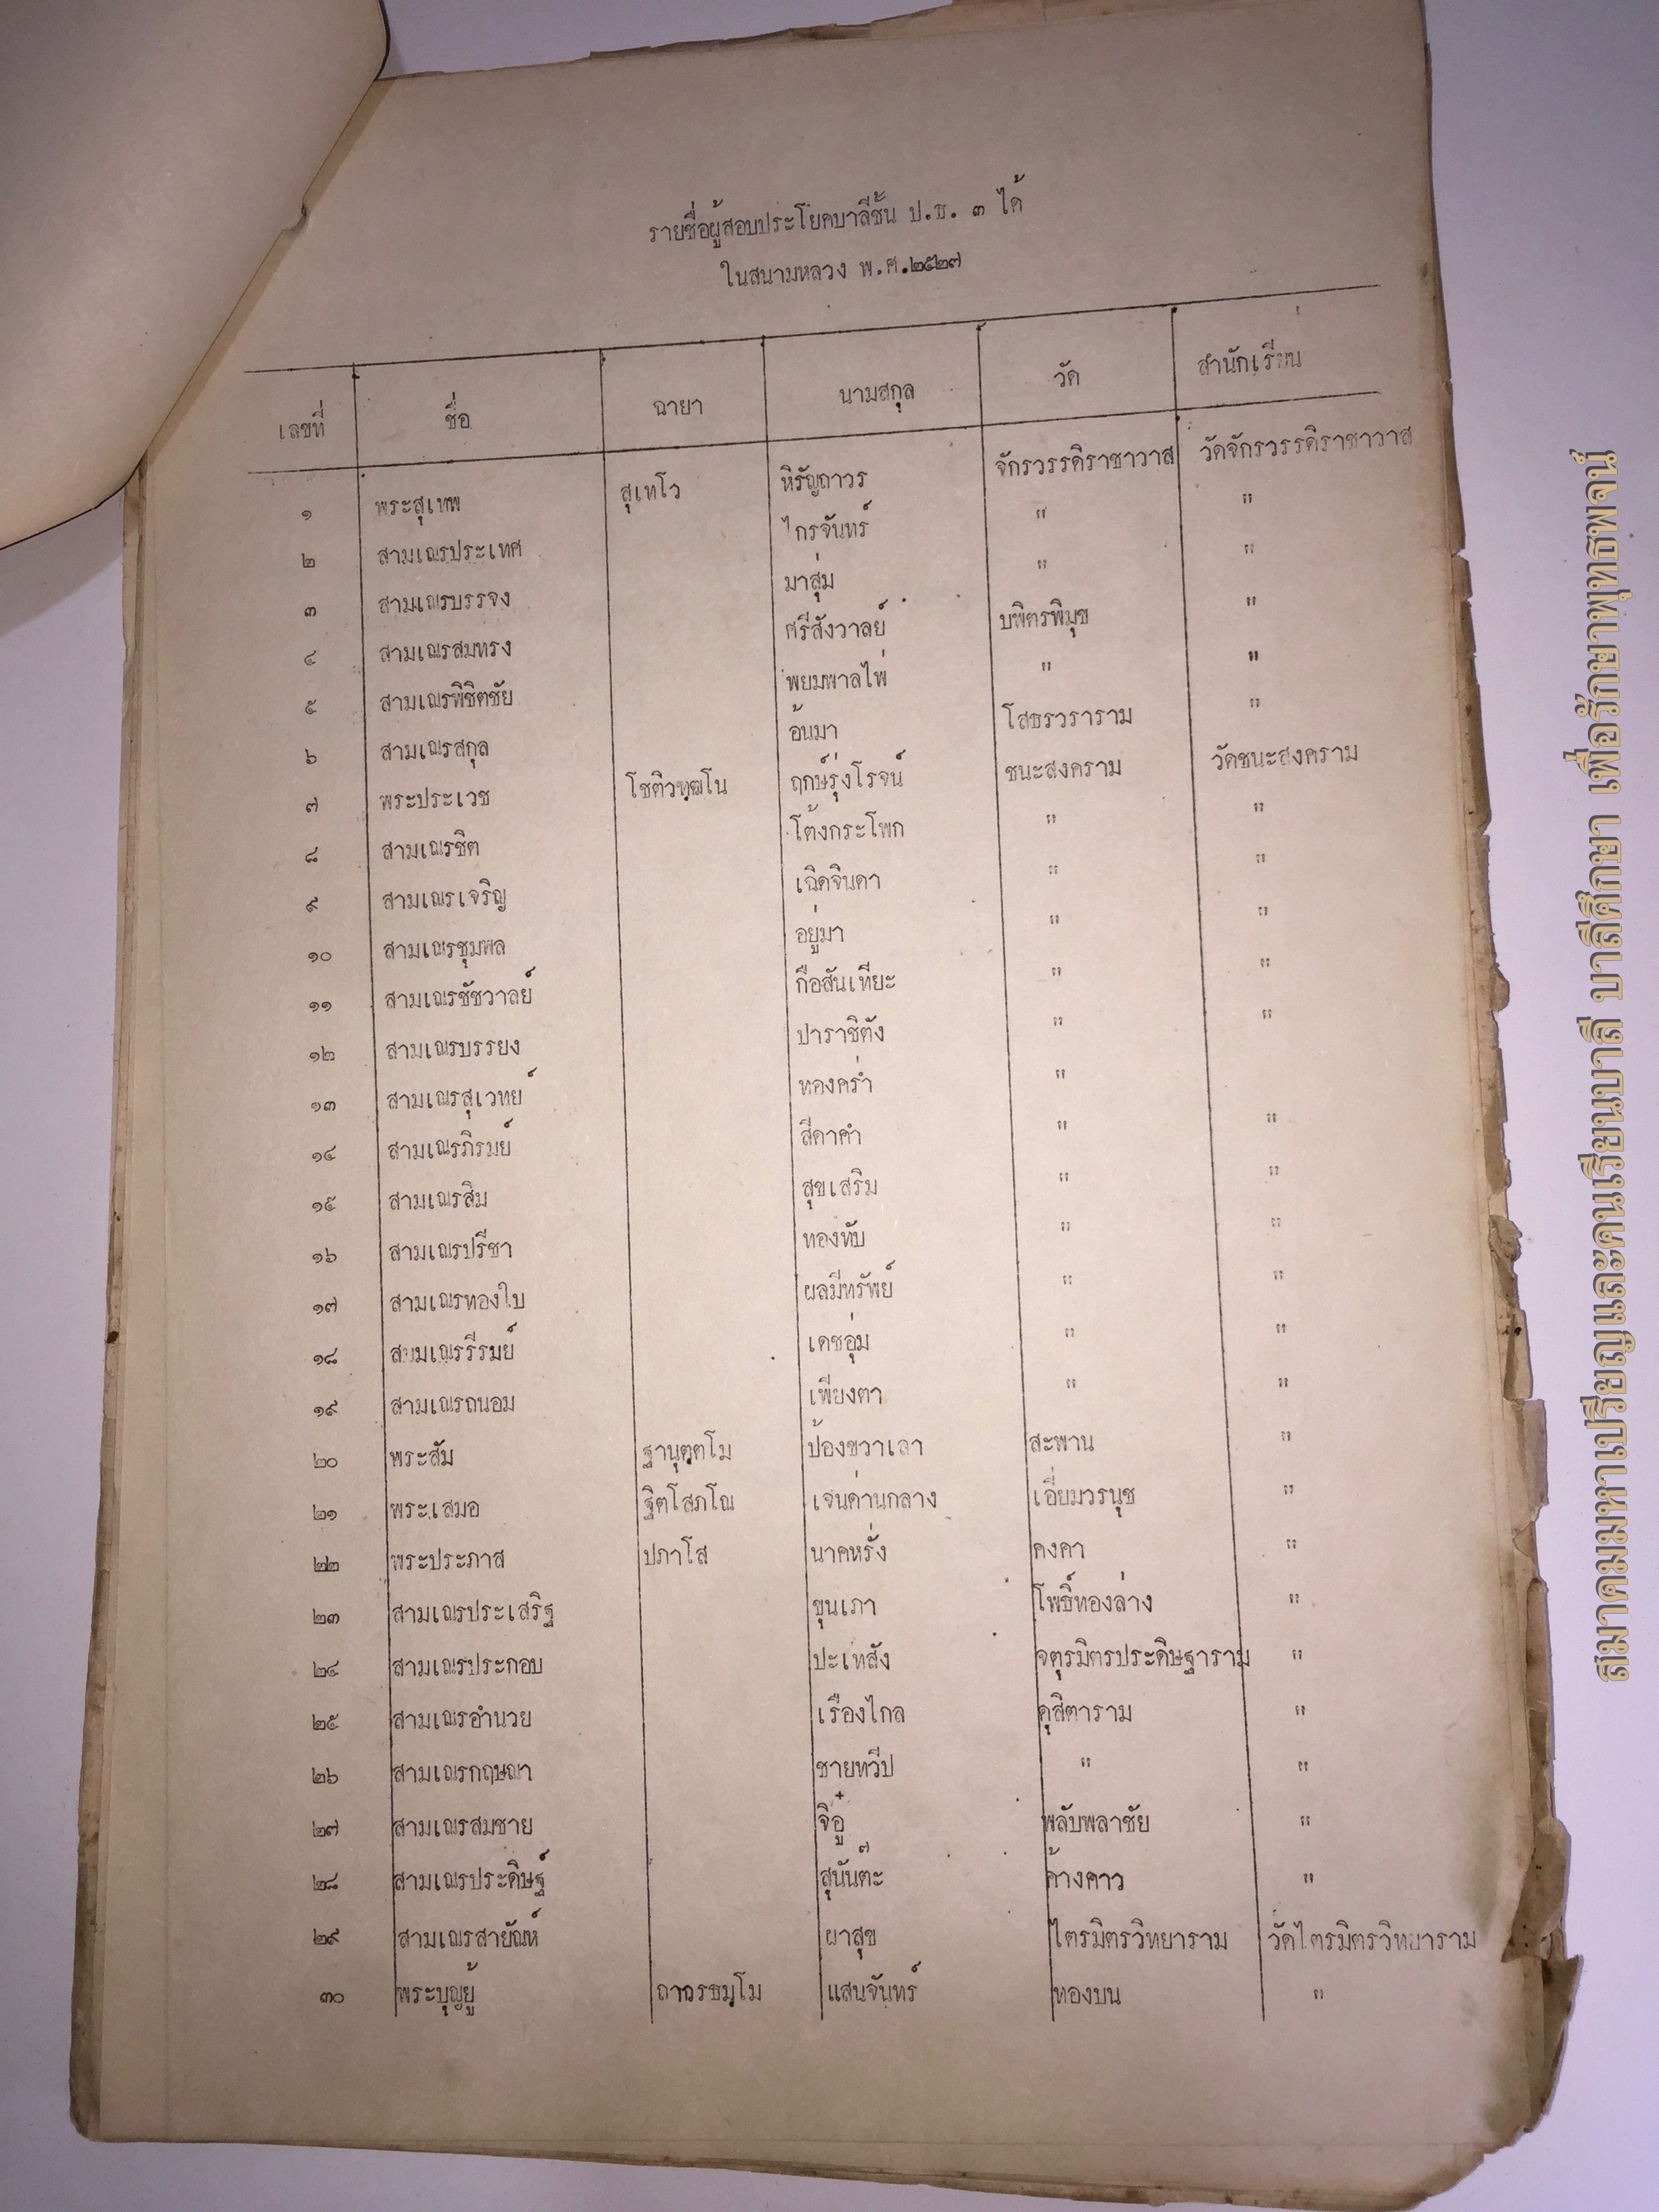 รายชื่อผู้สอบประโยคบาลีชั้น ป.ธ. ๓ ได้
ในสนามหลวง พ.ศ.๒๕๒๗
เลขที่ ชื่อ ฉายา นามสกุล วัด สำนักเรียน
๑ พระสุเทพ สุเทโว หิรัญถาวร จักรวรรดิราชาวาส วัดจักรวรรดิราชาวาส
๒ สามเณรประเทศ ไกรจันทร์ " "
๓ สามเณรบรรจง มาสุ่ม " "
๔ สามเณรสมทรง ศรีสังวาลย์ บพิตรพิมุข "
๕ สามเณรพิชิตชัย พยมพาลไพ่ " "
๖ สามเณรสกุล อ้นมา โสธรวราราม "
๗ พระประเวช โชติวฑฺฒโน ฤกษ์รุ่งโรจน์ ชนะสงคราม วัดชนะสงคราม
๘ สามเณรชิต โต้งกระโพก " "
๙ สามเณรเจริญ เฉิดจินดา " "
๑๐ สามเณรชุมพล อยู่มา " "
๑๑ สามเณรชัชวาลย์ กือสันเทียะ " "
๑๒ สามเณรบรรยง ปาราชิตัง " "
๑๓ สามเณรสุเวทย์ ทองคร่ำ "
๑๔ สามเณรภิรมย์ สีดาคำ " "
๑๕ สามเณรสิม สุขเสริม " "
๑๖ สามเณรปรีชา ทองทับ " "
๑๗ สามเณรทองใบ ผลมีทรัพย์ " "
๑๘ สามเณรรีรมย์ เดชอุ่ม " "
๑๙ สามเณรถนอม เพียงตา " "
๒๐ พระสัม ฐานุตฺตโม ป้องขวาเลา สะพาน "
๒๑ พระเสมอ ฐิตโสภโณ เจนด่านกลาง เอี่ยมวรนุช "
๒๒ พระประภาส ปภาโส นาคหรั่ง คงคา "
๒๓ สามเณรประเสริฐ ขุนเภา โพธิ์ทองล่าง "
๒๔ สามเณรประกอบ ปะเทสัง จตุรมิตรประดิษฐาราม "
๒๕ สามเณรอำนวย เรืองไกล ดุสิตาราม "
๒๖ สามเณรกฤษณา ชายทวีป " "
๒๗ สามเณรสมชาย จิอู๋ พลับพลาชัย "
๒๘ สามเณรประดิษฐ์ สุนันต๊ะ ค้างคาว "
๒๙ สามเณรสายัณห์ ผาสุข ไตรมิตรวิทยาราม วัดไตรมิตรวิทยาราม
๓๐ พระบุญยู้ ถาวรธมฺโม แสนจันทร์ ทองบน "
สมาคมมหาเปรียญและคนเรียนบาลี บาลีศึกษา เพื่อรักษาพุทธพจน์